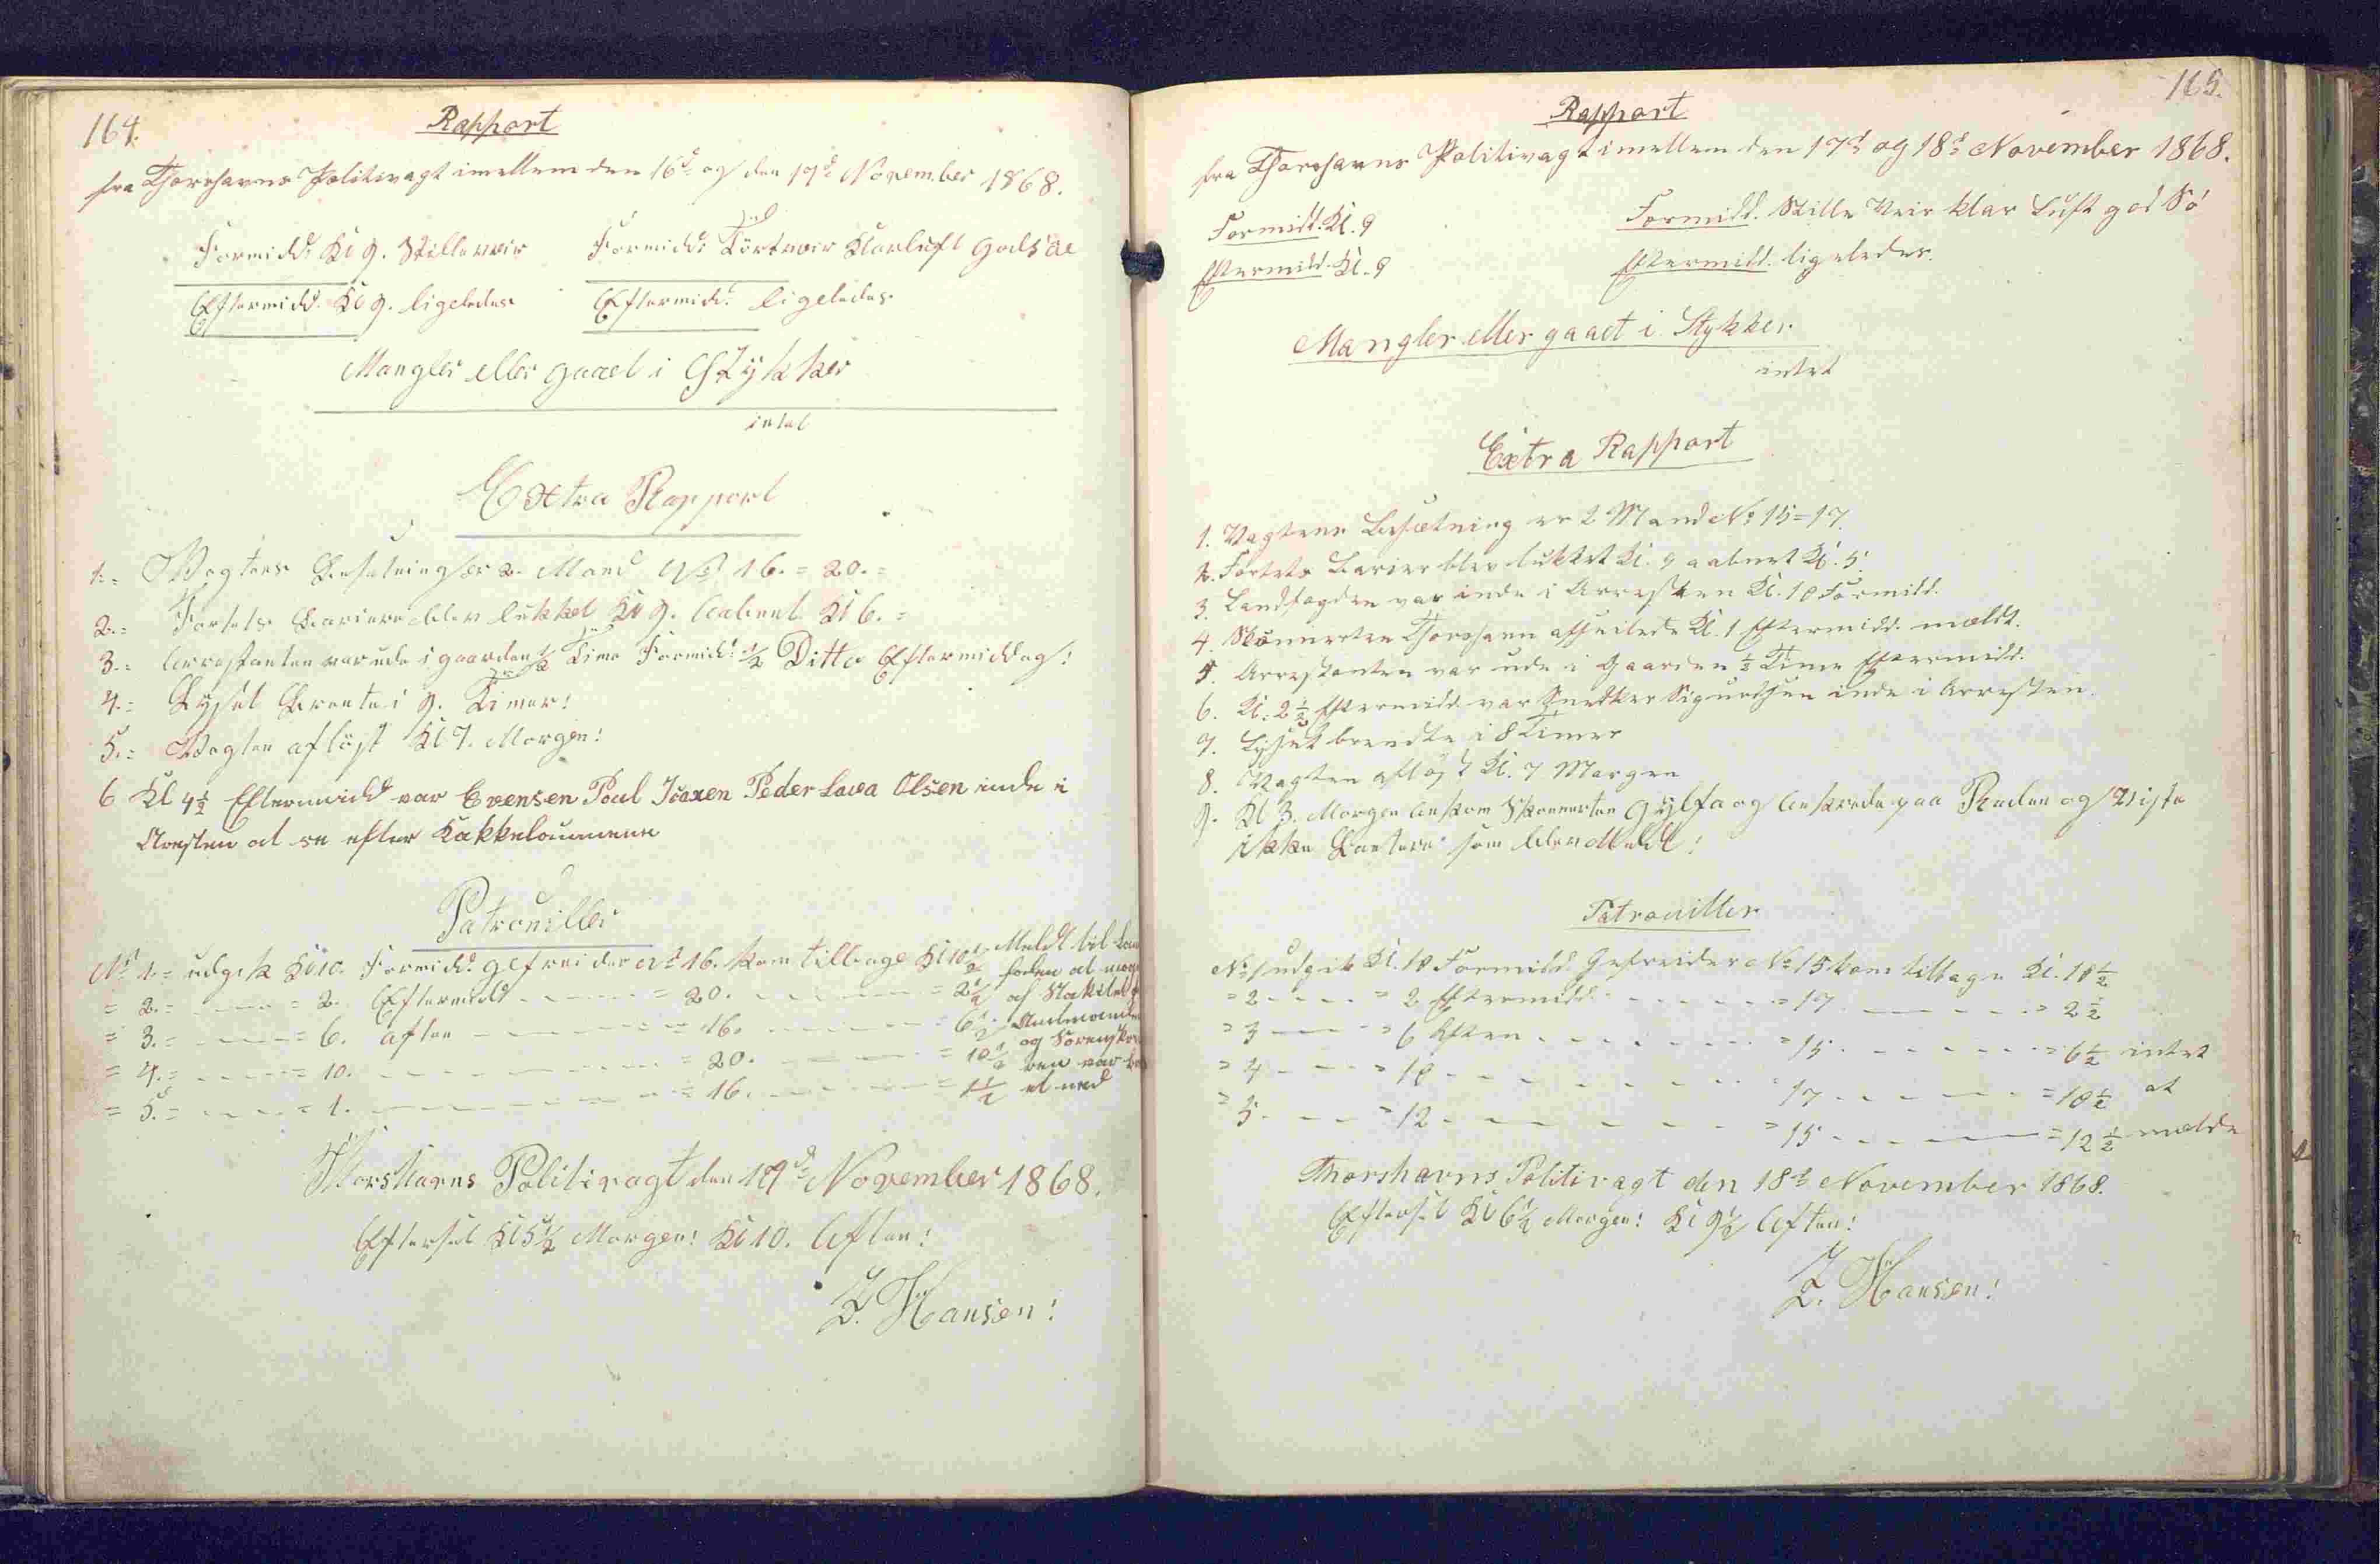 164.
Rapport
fra Thorshavns Politivagt imellem den 16d og den 17d November 1868.
Formidd: Kl 9. Stilleveir Formidd: Törtveir Klarluft godsöe
Eftermidd. Kl 9. ligeledes Eftermidd: ligeledes
Mangler eller gaaet i Stykker
intet
Extra Rapport
1.= Vagtens Besætning er 2. Mand No 16. = 20. =
2.= Fortets Bariere blev lukket Kl 9. Aabent Kl 6. =
3.= Arrestanten var ude i gaarden 1/2 Time Formidd: 1/2 Ditto Eftermiddag!
4.= Lyset Brente i 9. Timer!
5.= Vagten aflöst Kl 7. Morgen!
6 Kl 4 1/2 Eftermidd var Evensen Poul Joaxen Peder Olsen inde i
Aresten at se efter Kakkelovnene
Patrouiller
No 1.= udgik Kl 10. Formidd: gefreider No 16. kom tilbage Kl 10 1/2 Meldt til
= 2.= - - - = 2. Eftermidd - - - = 20. - - - = 2 1/2 af Stakitet
= 3.= - - - = 6. aften - - - = 16. - - - = 6 1/2
= 4.= - - - = 10. - - - = 20. - - - = 10 1/2 og
= 5.= - - - = 1. - - - = 16. - - - = 1 1/2 et ned
Thorshavns Politivagt den 17d November 1868.
Efterset Kl 5 1/2 Morgen! Kl 10. Aften!
J. Hansen!
165.
Rapport
fra Thorshavns Politivagt imellem den 17d og 18d November 1868.
Formidd. Kl. 9 Formidd. Stille Veir klar Luft god Sö
Eftermidd. Kl. 9 Eftermidd. ligeledes.
Mangler eller gaaet i Stykker
intet
Extra Rapport
1. Vagtens Besætning er 2 Mand No 15 = 17.
2. Fortets Barier blev lukket Kl. 9 aabnet Kl. 5.
3. Landfogden var inde i Arresten Kl. 10 Formidd.
4. Skonnerten Thorshavn afseilede Kl. 1 Eftermidd. meldt.
5. Arrestanten var ude i Gaarden 1/2 Time Eftermidd.
6. Kl. 2 1/2 Eftermidd var Snedker Sigurdsen inde i Arresten.
7. Lyset brendte i 8 Timer
8. Vagten aflöst Kl. 7 Morgen
9. Kl 3. Morgen Ankom Skonnerten Gylfa og Ankrede paa Reden og Viiste
ikke Lanterne som blev Meldt!
Patrouiller
No 1 udgik Kl. 10 Formidd. Gefreider No 15 kom tilbage Kl. 10 1/2
= 2 - - - = 2 Eftermidd. - - - = 17 - - - = 2 1/2
= 3 - - - = 6 Aften - - - = 15 - - - = 6 1/2 intet
= 4 - - - = 10 - - - = 17 - - - = 10 1/2 at
= 5 - - - = 12 - - - = 15 - - - = 12 1/2 melde
Thorshavns Politivagt den 18d November 1868.
Efterset Kl 6 1/2 Morgen! Kl 9 1/2 Aften!
J. Hansen!